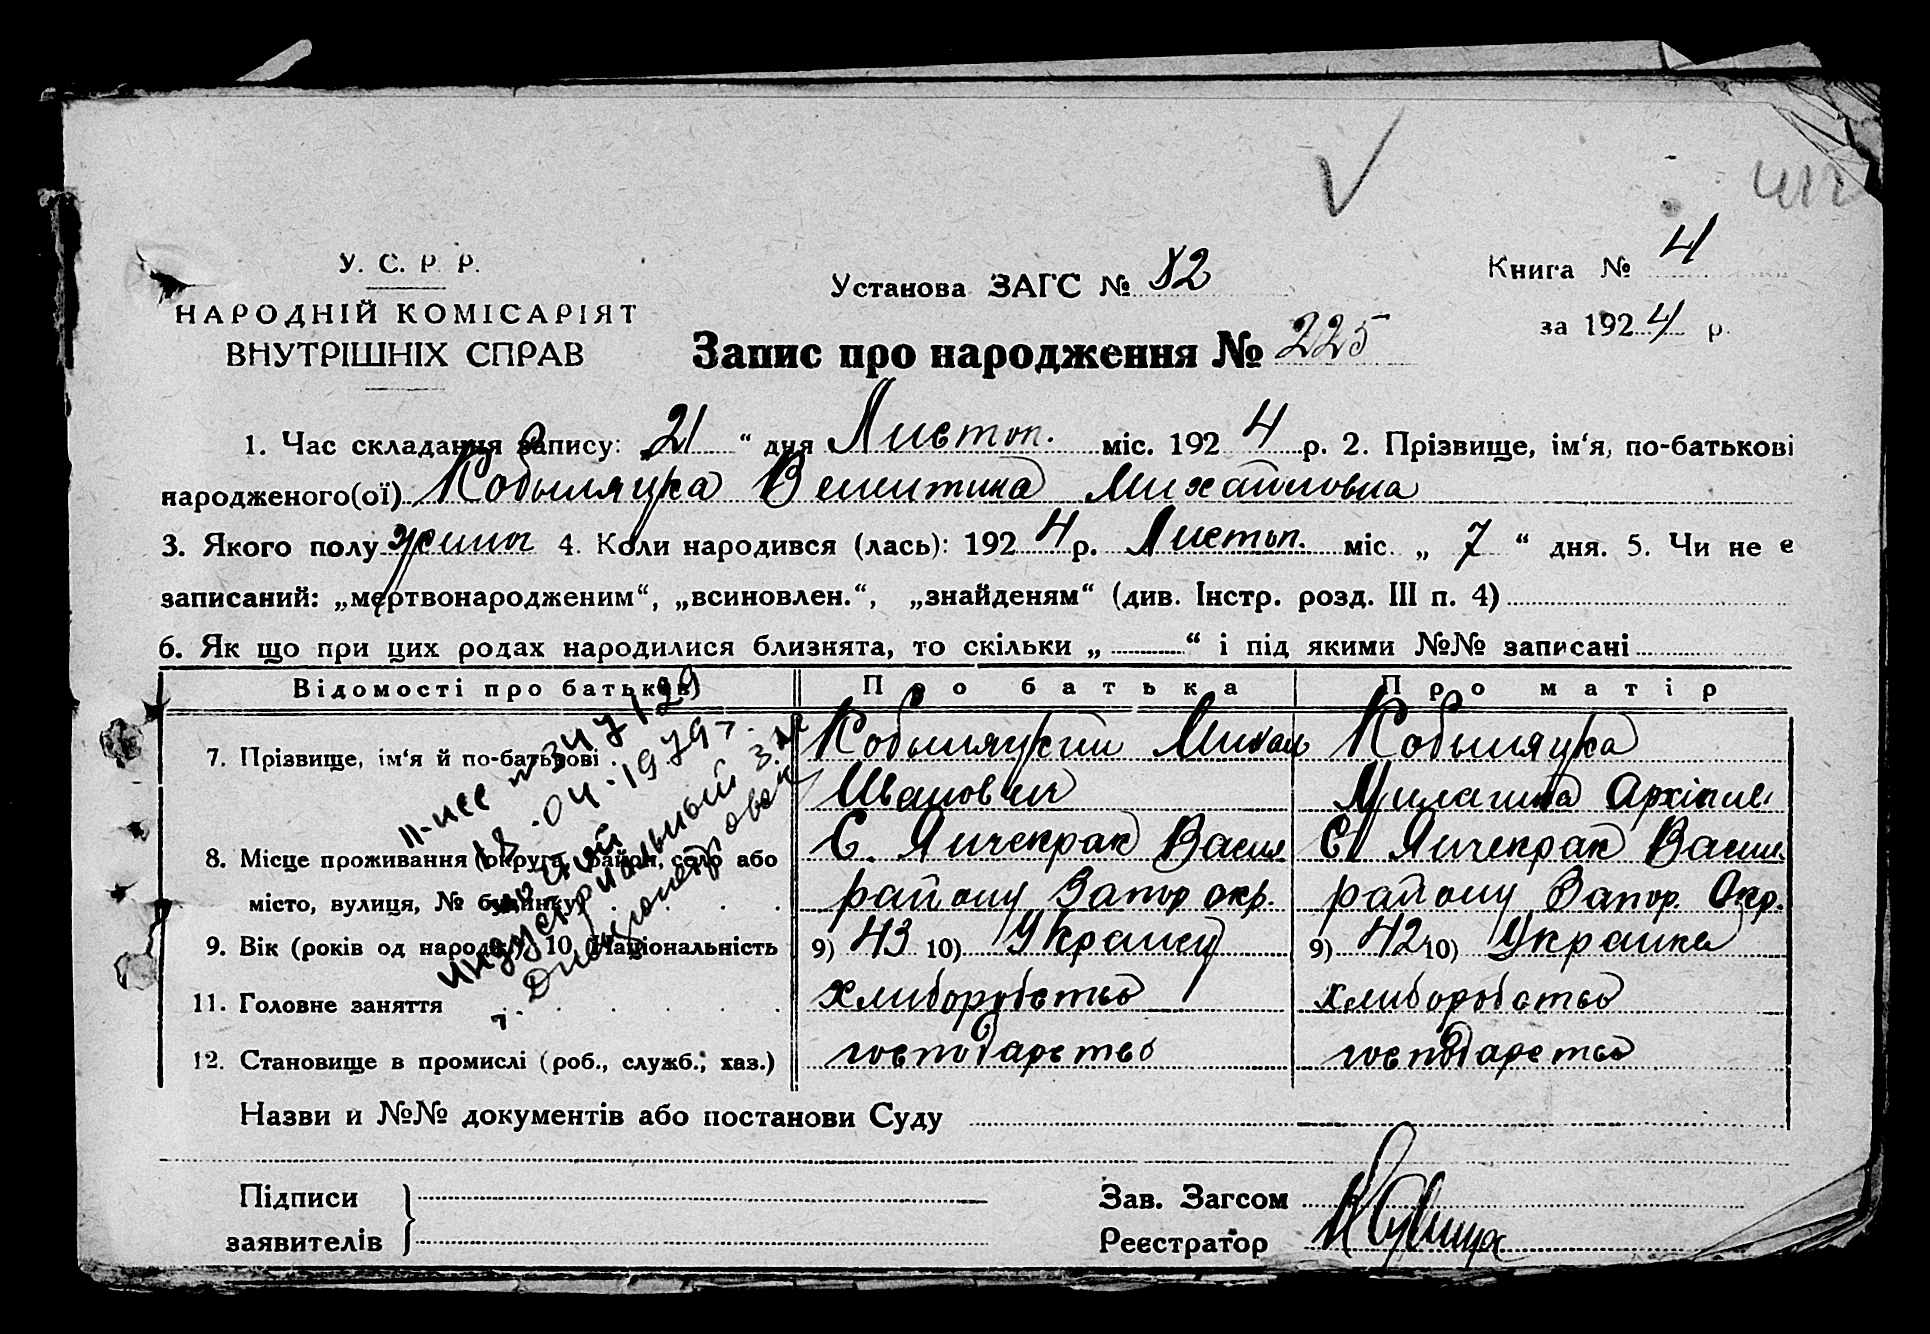 У. С. Р. Р.
НАРОДНІЙ КОМІСАРІЯТ
ВНУТРІШНІХ СПРАВ
Установа ЗАГС № 82
Книга № 4
за 1924 р.
Запис про народження № 225
1. Час складання запису: 21 “ дня Листоп. міс. 1924 р. 2. Прізвище, ім‘я, по-батькові
народженого(ої) Кобыляцка Михайловна
3. Якого полу жиноч 4. Коли народився (лась): 1924 р. Листоп. міс. „ 7 “ дня. 5. Чи не є
записаний: „мертвонародженим“, „всиновлен.“, „знайденям“ (див. Інстр. розд. III п. 4)
6. Як що при цих родах народилися близнята, то скільки „ “ і під якими №№ записані
Відомості про батьків) Про батька Про матір
7. Прізвище, ім‘я й по-батькові . Кобыляцкий Михаил Кобыляцка
Иванович
8. Місце проживання (округа, район, село або С. Яичекрак Васил. С. Яичекрак Васил.
місто, вулиця, № будинку) району Запор окр. району Запор. Окр.
9. Вік (років од народж.) 10. Національність 9) 43 10) Украинец 9) 42 10) Украинка
11. Головне заняття хлиборобство хлиборобство
12. Становище в промислі (роб., служб., хаз.) господарство господарство
Назви й №№ документів або постанови Суду
Підписи
заявителів
Зав. Загсом
Реєстратор
II-ИСС № 347129
18.04.1979г.
Индустриальный ЗАГС
г. Днепропетровск